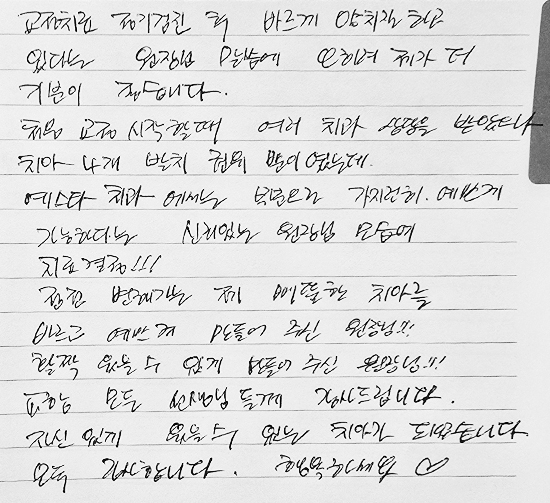 교정치료 정기검진 혹 바르게 양치질 하고
있다는 원장님 말씀에 오히려 제가 더
기분이 좋습니다.
처음 교정 시작할때 여러 치과 상담을 받았으나
치아 4개 발치 권유 많이 였는데.
예스타 치과 에서는 가지런히. 예쁘게
가능하다는 신뢰있는 원장님 모습에
치료결정!!!
점점 변해가는 제 삐뚤한 치아를
바르고 예쁘게 만들어 주신 원장님!!
활짝 웃을 수 있게 만들어 주신 원장님!!
교정 모든 선생님 들께 감사드립니다.
자신 있게 웃을 수 있는 치아가 되었습니다
모두 감사합니다. 행복하세요 ♡